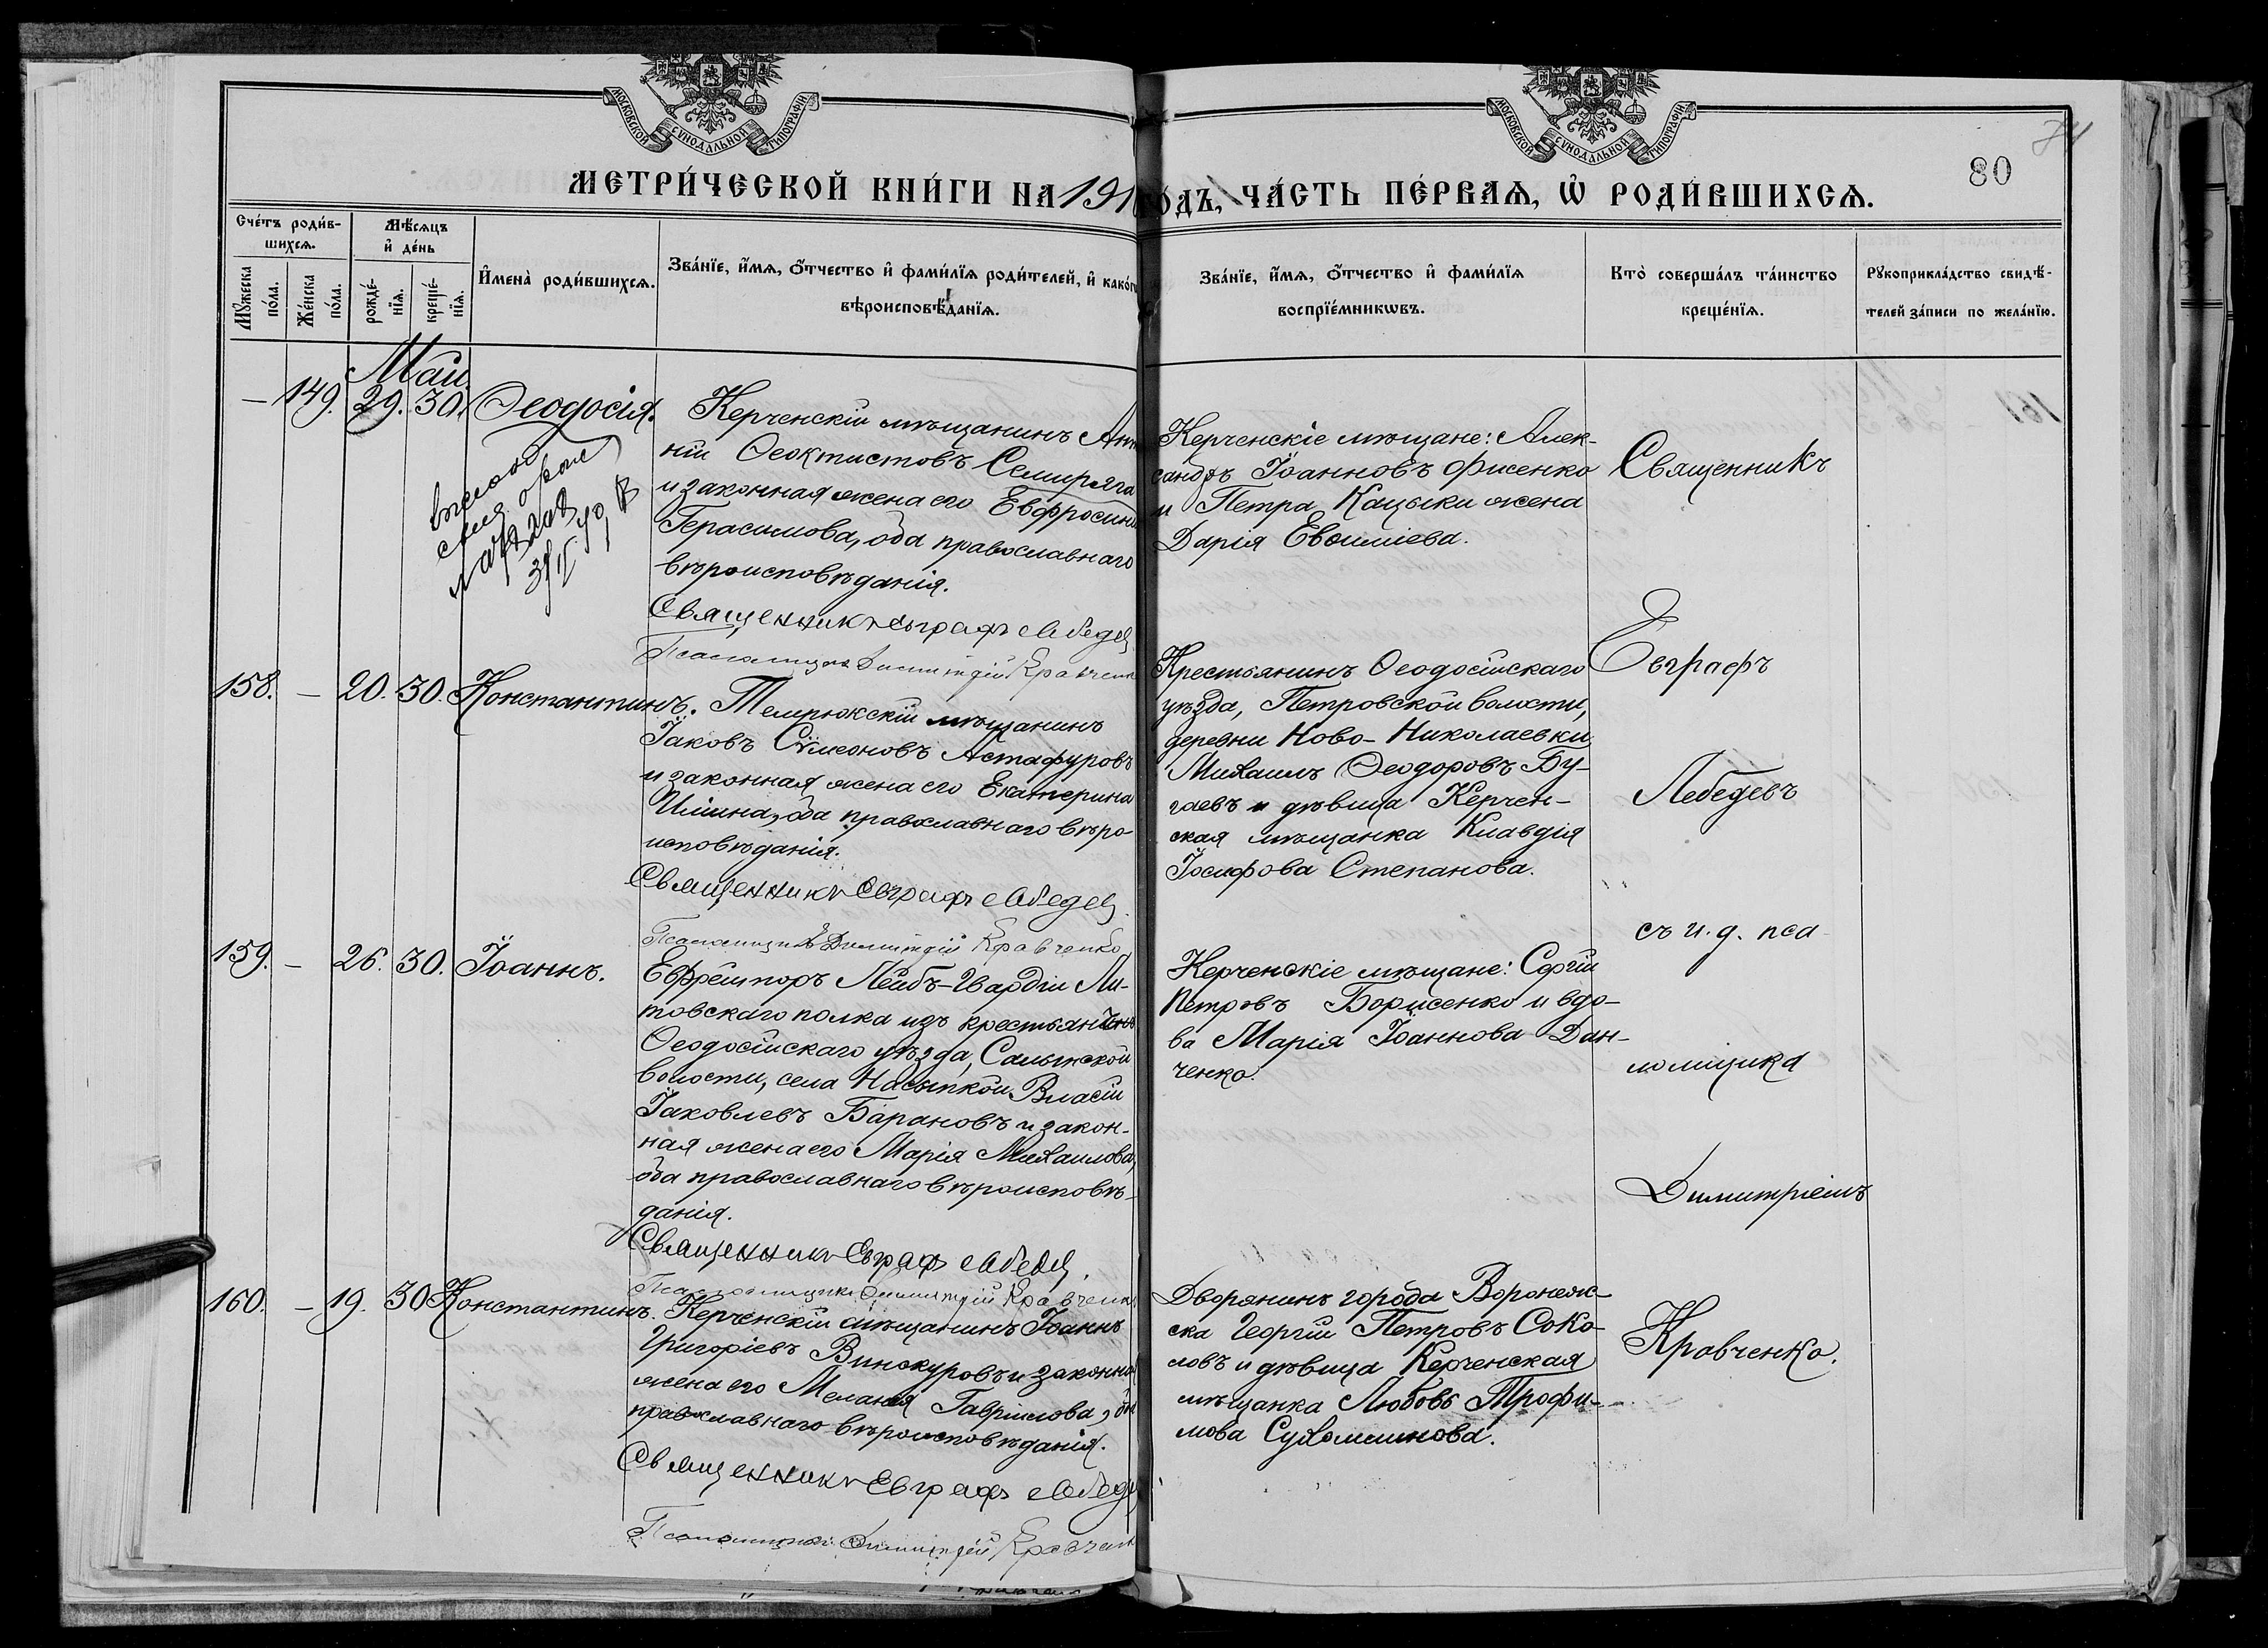 МОСКОВСКОЙ СѴНОДАЛЬНОЙ ТИПОГРАФІИ
МОСКОВСКОЙ СѴНОДАЛЬНОЙ ТИПОГРАФІИ
80
МЕТРИ́ЧЕСКОЙ КНИ́ГИ НА 191 ОДЪ, ЧА́СТЬ ПЕ́РВАѦ, Ѡ҆ РОДИ́ВШИХСѦ.
Сче́тъ роди́в-
шихсѧ.
Мꙋ́жеска
по́ла.
Же́нска
по́ла.
Мѣ́сѧцъ
и҆ де́нь
рожде́-
нїѧ.
креще́-
нїѧ.
И҆мена̀ роди́вшихсѧ.
Зва́нїе, и҆́мѧ, ѻ҆́тчество и҆ фами́лїѧ роди́телей, и҆ како́гѡ
вѣроисповѣ́данїѧ.
Зва́нїе, и҆́мѧ, ѻ҆́тчество и҆ фами́лїѧ
воспрїе́мникѡвъ.
Кто̀ соверша́лъ та́инство
креще́нїѧ.
Рꙋкоприкла́дство свидѣ́-
телей за́писи по жела́нїю.
Маи
— 149. 29. 30. Ѳеодосія.
Керченскій мѣщанинъ Анто
ній Ѳеоктистовъ Семиряга
и законная жена его Евфросинія
Герасимова, оба православнаго
вѣроисповѣданія.
Священникъ Евграфъ Лебедев
Псаломщикъ Димитрій Кравченко
Керченскіе мѣщане: Алек-
сандръ Іоанновъ Фисенко
и Петра Кацыки жена
Дарія Евѳиміева.
158. — 20. 30. Константинъ.
Темрюкскій мѣщанинъ
Іаковъ Сѵмеоновъ Астафуровъ
и законная жена его Екатерина
Иліина, оба православнаго вѣро-
исповѣданія.
Священникъ Евграфъ Лебедев
Псаломщикъ Димитрій Кравченко
Крестьянинъ Ѳеодосійскаго
уѣзда, Петровской волости,
деревни Ново-Николаевки
Михаилъ Ѳеодоровъ Бу-
гаевъ и дѣвица Керчен-
ская мѣщанка Клавдія
Іосифова Степанова.
159. — 26. 30. Іоаннъ.
Ефрейторъ Лейбъ-Гвардіи Ли-
товскаго полка изъ крестьянъ
Ѳеодосійскаго уѣзда, Салынской
волости, села Насыпкой Власій
Іаковлевъ Барановъ и закон-
ная жена его Марія Михаилова,
оба православнаго вѣроисповѣ-
данія.
Священникъ Евграфъ Лебедев
Псаломщикъ Димитрій Кравченко
Керченскіе мѣщане: Сергій
Петровъ Борисенко и вдо-
ва Марія Іоаннова Дан-
ченко.
160. — 19. 30 Константинъ.
Керченскій мѣщанинъ Іоаннъ
Григоріевъ Винокуровъ и законная
жена его Меланія Гавріилова, оба
православнаго вѣроисповѣданія.
Священникъ Евграфъ Лебедев
Псаломщикъ Димитрій Кравченко
Дворянинъ города Воронеж-
ска Георгій Петровъ Соко-
ловъ и дѣвица Керченская
мѣщанка Любовь Трофи-
мова Сухомлинова.
Священникъ
Евграфъ
Лебедевъ
съ и. д. пса
ломщика
Димитріемъ
Кравченко.